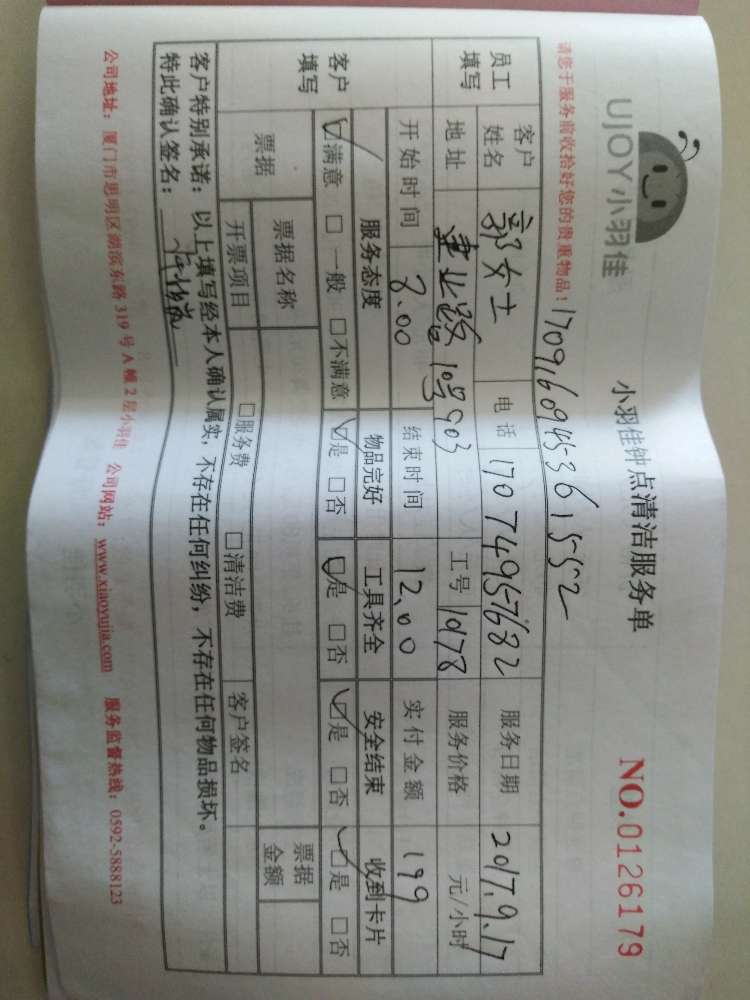 UJOY小羽佳
小羽佳钟点清洁服务单
NO.0126179
请您于服务前收拾好您的贵重物品！
员工填写 客户姓名 郭女士 电话 17074957682 服务日期 2017.9.17
地址 建业路10号903 工号 1078 服务价格 元/小时
开始时间 8.00 结束时间 12.00 实付金额 199
客户填写 服务态度 物品完好 工具齐全 安全结束 收到卡片
☑满意 □一般 □不满意 ☑是 □否 ☑是 □否 ☑是 □否 ☑是 □否
票据 票据名称 票据金额
开票项目 □服务费 □清洁费 客户签名
客户特别承诺：以上填写经本人确认属实，不存在任何纠纷，不存在任何物品损坏。
特此确认签名：
公司地址：厦门市思明区湖滨东路319号A幢2层小羽佳 公司网站：www.xiaoyujia.com 服务监督热线：0592-5888123